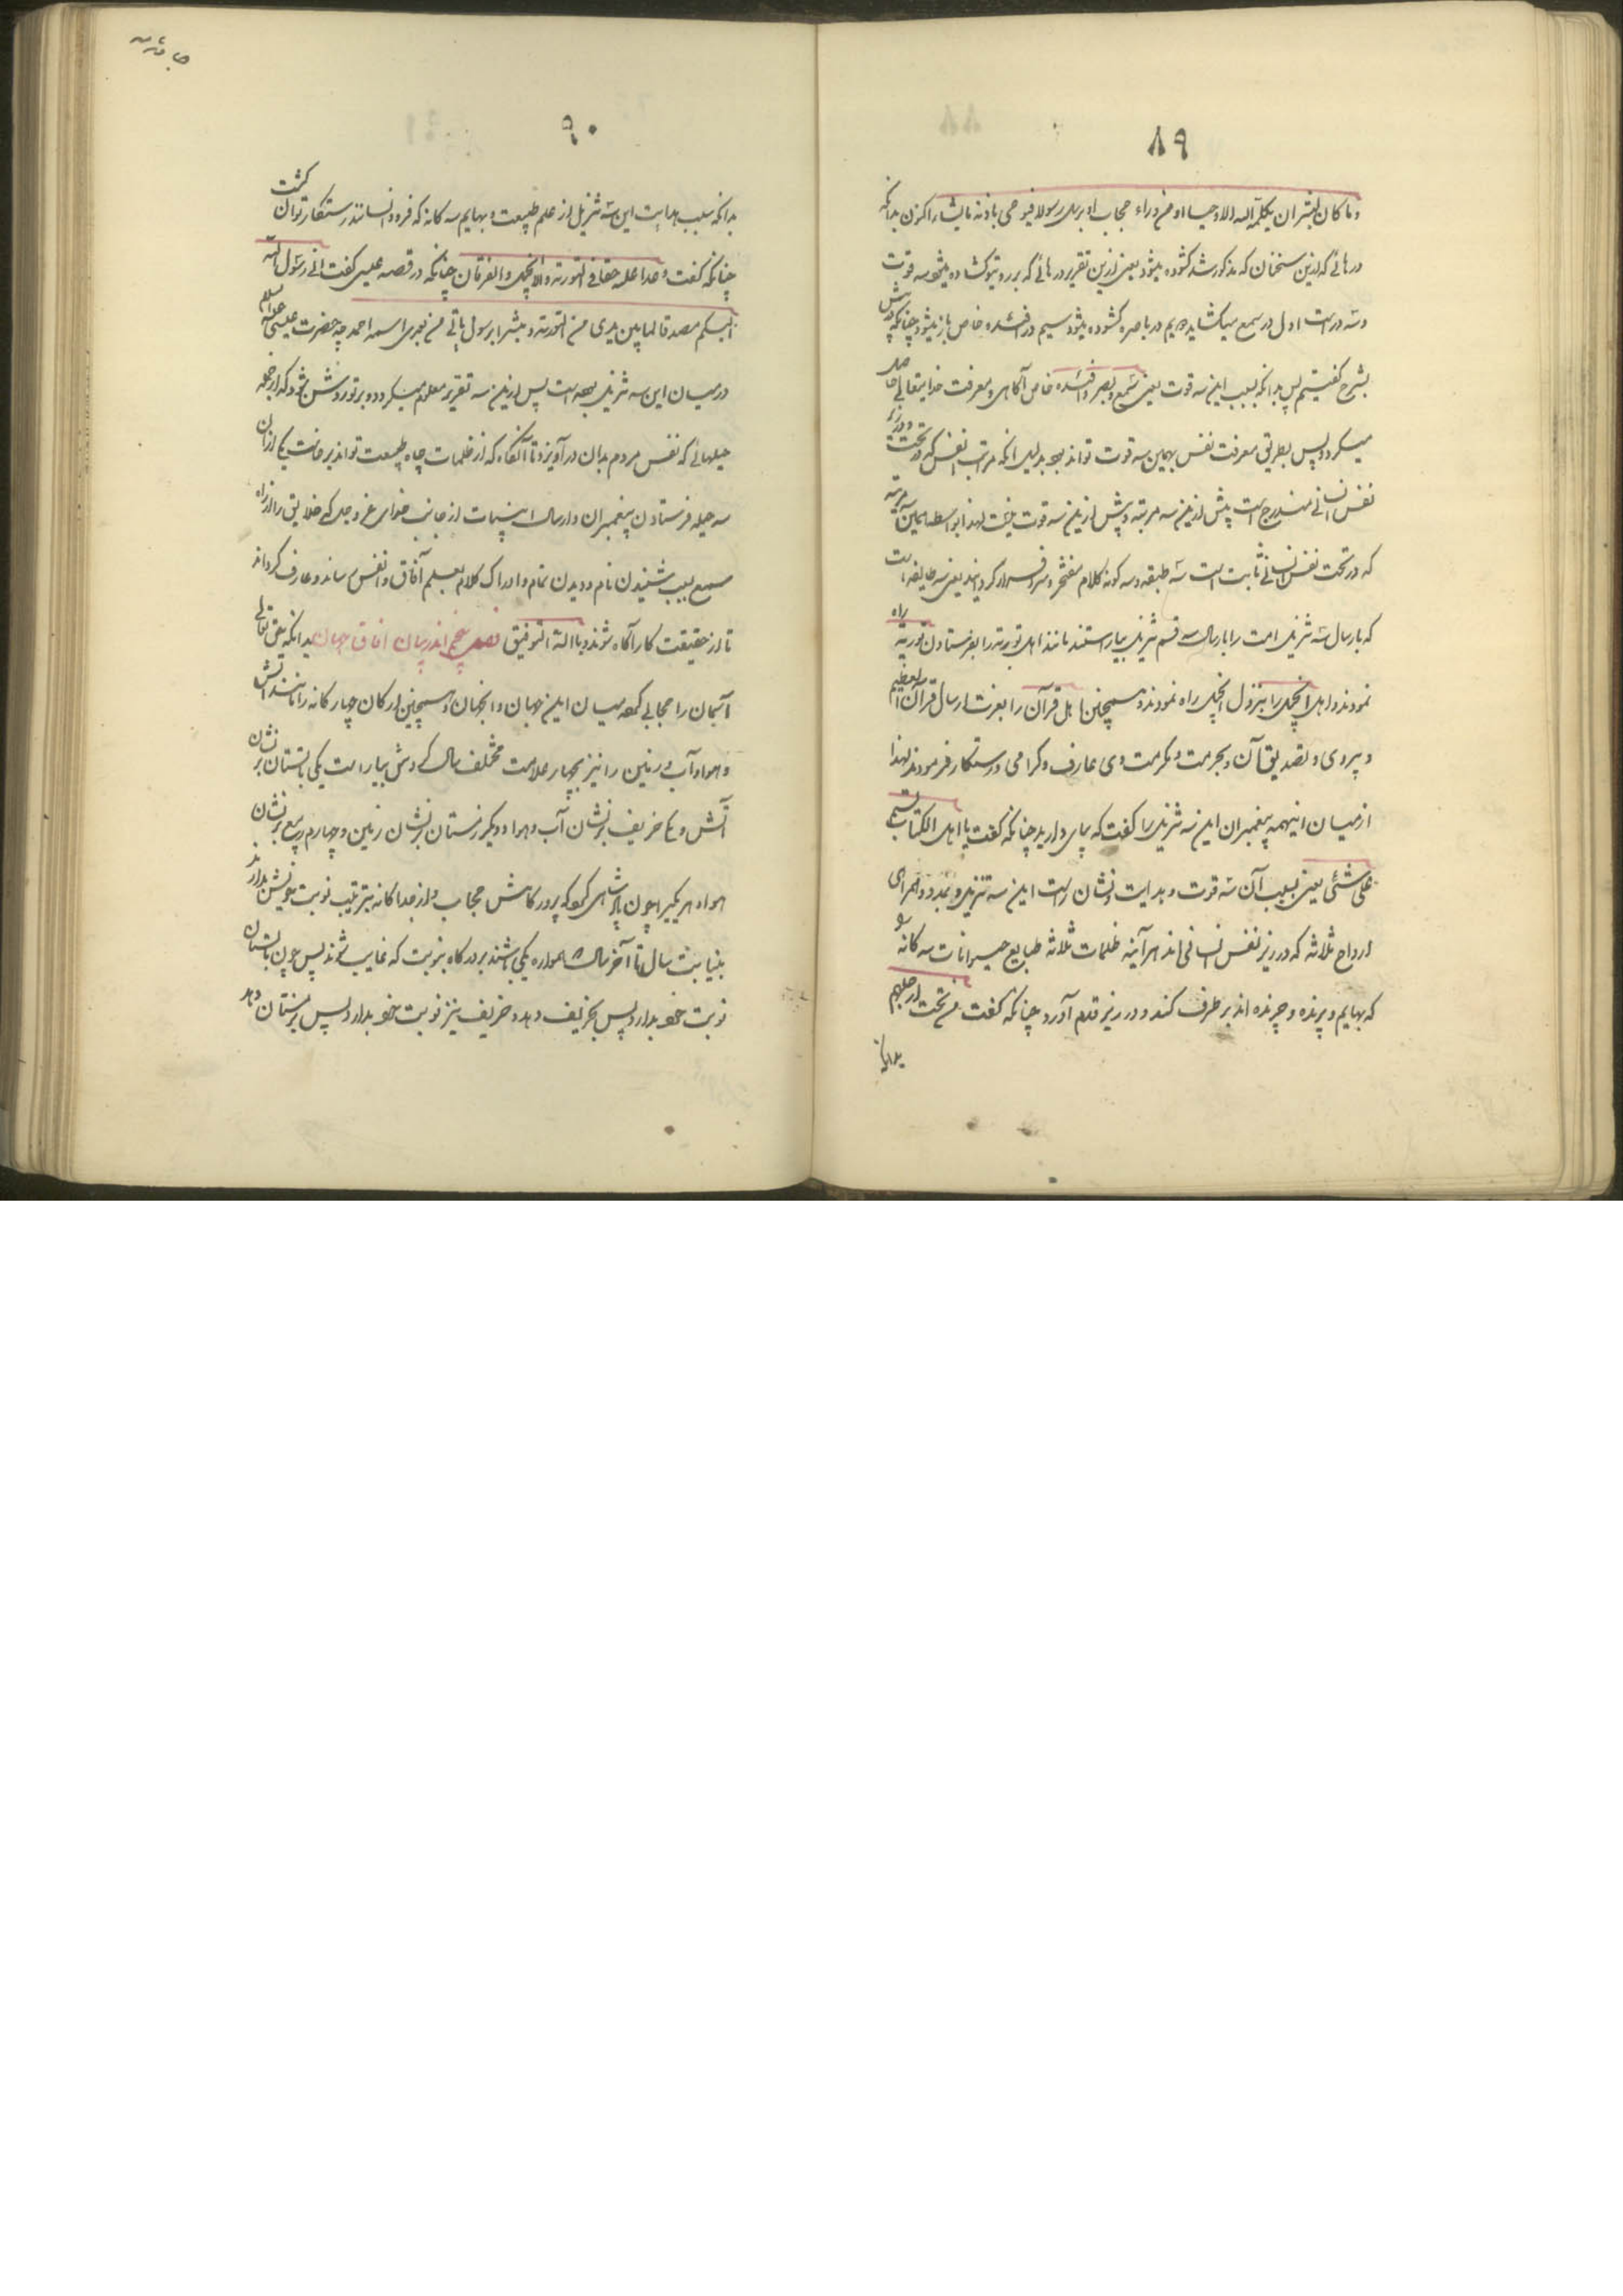 ۸۹
وما کان لبشر ان یکلمه الله الا وحیا او من وراء حجاب او یرسل رسولا فیوحی باذنه ما یشاء اکنون بدانکه
درهائی که ازین سخنان که مذکور شد کشوده میشود یعنی ازین تقریر درهائی که بر رو تو کشاده میشود سه قوت
وسه در است اول در سمع میکشاید دویم در باصره کشوده میشود سیم در افئده خاص باز میشود چنانکه پیش
بشرح گفتیم پس بدانکه بسبب این سه قوت یعنی سمع وبصر وافئده خاص آگاهی ومعرفت خدایتعالی حاصل
میگردد پس بطریق معرفت نفس بهمین سه قوت تواند بود بدلیل آنکه مراتب نفس که در تحت ودر زیر
نفس انسانی مندرج است پیش ازین سه مرتبه وپیش ازین سه قوت نیست لهذا بواسطه این سه مرتبه
که در تحت نفس انسانی ثابت است سه طبقه وسه گونه کلام مفتخر وسرافراز گردانید یعنی سه طایفه است
که بارسال سه تنزیل امت را بارسال سه قسم تنزیل بیاراستند مانند اهل توریة را بفرستادن توریة راه
نمودند واهل انجیل را بنزول انجیل راه نمودند وهمچنین اهل قرآن را بعزت ارسال قرآن العظیم
وپیروی وتصدیق آن وبحرمت ومکرمت وی عارف وگرامی ورستگار فرمودند لهذا
از میان اینهمه پیغمبران این سه تنزیل را گفت که بپای دارید چنانکه گفت یا اهل الکتاب لستم
علی شئی یعنی بسبب آن سه قوت وهدایت ونشان راست این سه تنزیل وبمدد وهمراهی
ارواح ثلاثه که در زیر نفس انسانی اند هرآینه ظلمات ثلاثه طبایع حیوانات سه گانه را
که بهایم وپرنده وچرنده اند برطرف کند ودر زیر قدم آورد چنانکه گفت من تحت ارجلهم
بدانکه
۹۰
بدانکه بسبب هدایت این سه تنزیل از علم طبیعت وبهایم سه گانه که فرود انسانند رستگار توان گشت
چنانکه گفت وعدا علیه حقا فی التوریة والانجیل والفرقان چنانکه در قصه عیسی گفت انی رسول الله
الیکم مصدقا لما بین یدی من التوریة ومبشرا برسول یاتی من بعدی اسمه احمد چه حضرت عیسی علیه السلام
در میان این سه تنزیل بوده است پس ازین سه تقریر معلوم میگردد وبر تو روشن شود که از جمله
حیلهائی که نفس مردم بدان درآویزد تا آنگاه که از ظلمات چاه طبیعت تواند برخاست یکی از ان
سه حیله فرستادن پیغمبران وارسال این سه تنزیلات از جانب خدای عز وجل که خلایق را از راه
سمع بسبب شنیدن نام ودیدن تمام وادراک کلام بعلم آفاق وانفس رساند وعارف گرداند
تا از حقیقت کار آگاه شوند وبالله التوفیق فصل پنجم اندر بیان آفاق جهان بدانکه حق تعالی
آسمان را حجابی کرده میان این جهان وآنجهان وهمچنین ارکان چهارگانه را مانند آتش
وهوا وآب وزمین را نیز بچهار علامت مختلف سال که وش بیاراست یکی تابستان بر نشان
آتش ویکی خریف بر نشان آب وهوا ودیگر زمستان بر نشان زمین وچهارم ربیع بر نشان
هوا وهر یکی را چون پادشاهی کرده که پرور گاهش حجاب واز جداگانه بترتیب نوبت خویش بدارند
بنیابت سال تا آخر سال همواره یکی باشند بر درگاه بنوبت که غایب شوند پس چون تابستان
نوبت خود بدارد پس بخریف دهد وخریف نیز نوبت خود بدارد پس بزمستان دهد